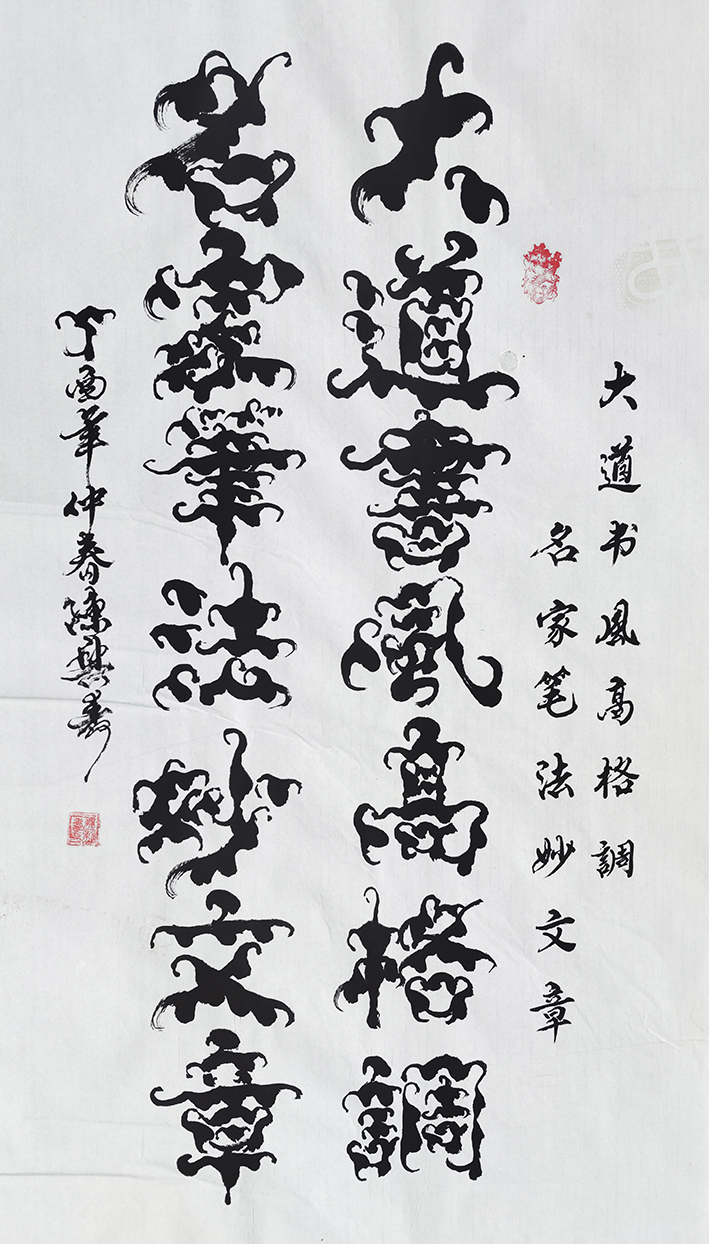 大道书風高格調
名家笔法妙文章
大道書風高格調
名家筆法妙文章
丁酉年仲春陳興